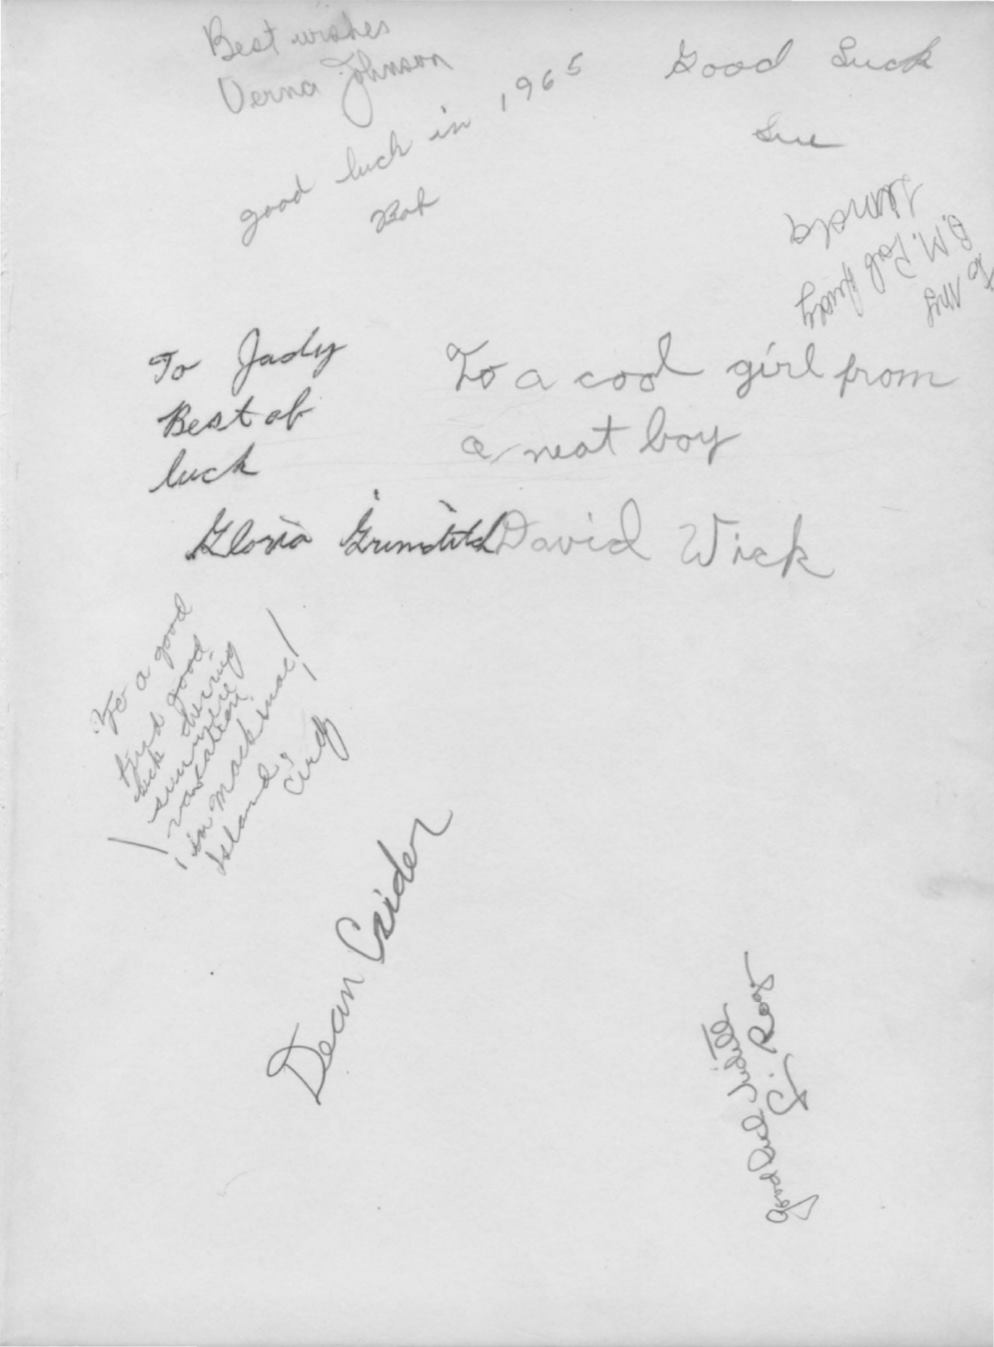 Best wishes
Verna Johnson
good luck in 1965
Bob
Good Luck
Sue
To My
B.M. Pal Judy
To Judy
Best of
luck
Gloria
To a cool girl from
a neat boy
David Wick
To a good
kid good
luck during
summer
vacation
in Mackinac!
Island,
Cindy
Dean Crider
Good Luck